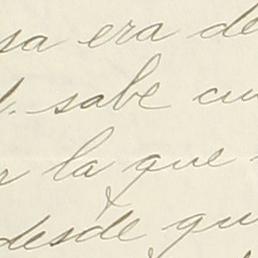 sa era de
sabe cu
la que
desde qu